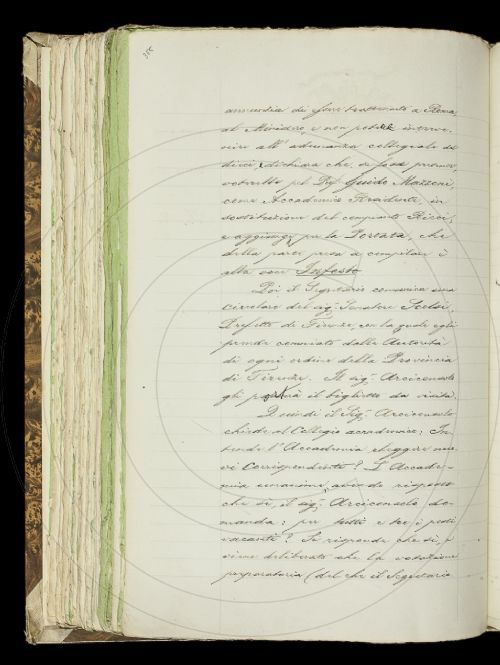 355
annunzia di esser trattenuto a Roma,
al Ministero, e non potrebbe interve-
nire all' adunanza collegiale di
dieci, dichiara che, se fosse presente,
voterebbe pel Prof. Guido Mazzoni,
come Accademico Residente, in
sostituzione del compianto Ricci,
e aggiunge per la Portata, che
della parte presa a compilare è
alla voce Infesto.
Poi il Segretario comunica una
circolare del sig. Senatore Scelsi,
Prefetto di Firenze, con la quale egli
prende commiato dalle Autorità
di ogni ordine della Provincia
di Firenze. Il sig. Arciconsolo
gli porterà il biglietto da visita.
Quindi il Sig. Arciconsolo
chiede al Collegio accademico: In-
tende l'Accademia eleggere nuo-
vi Corrispondenti? L'Accade-
mia avendo risposto
che sì, il sig. Arciconsolo do-
manda: per tutti e tre i posti
vacanti? Si risponde che sì, e
viene deliberato che la votazione
preparatoria (del che il Segretario